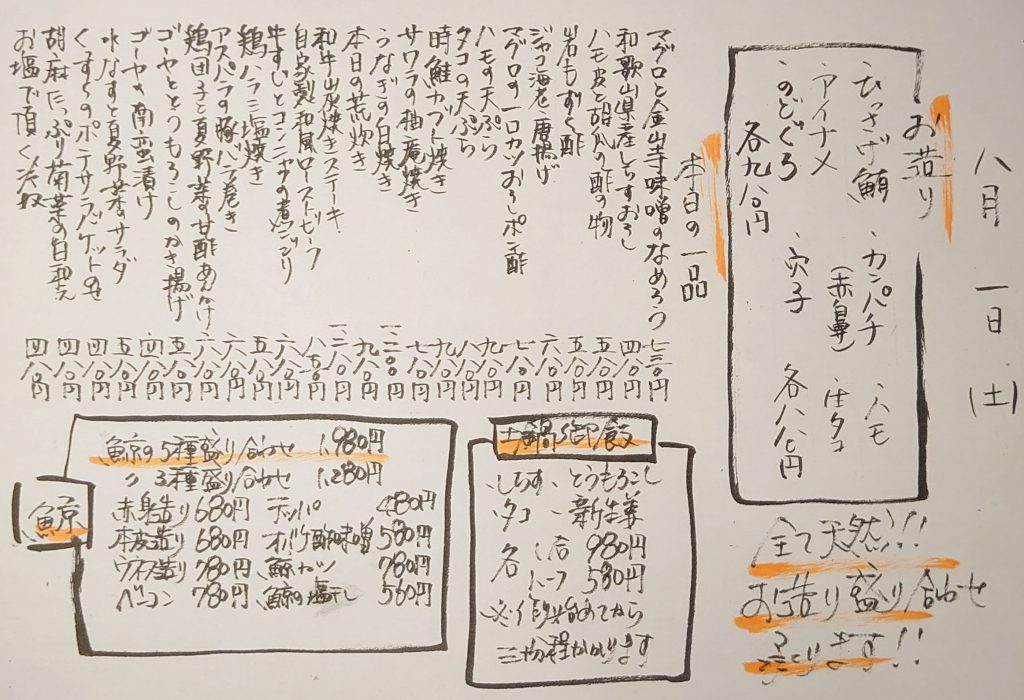 八月 一日 (土)
お造り
ひっさげ鮪 カンパチ ハモ
アイナメ (赤鼻) 活タコ
のどぐろ 穴子
各九八〇円 各八八〇円
全て天然!!
お造り盛り合わせ
承ります!!
本日の一品
マグロと金山寺味噌のなめろう 七三〇円
和歌山県産しらすおろし 四八〇円
ハモ皮と胡瓜の酢の物 五八〇円
岩もずく酢 五八〇円
ジャコ海老唐揚げ 六八〇円
マグロの一口カツおろしポン酢 七八〇円
ハモの天ぷら 九八〇円
タコの天ぷら 八八〇円
時鮭カブト焼き 九八〇円
サワラの柚庵焼き 七八〇円
うなぎの白焼き
本日の荒炊き 九八〇円
和牛山水焼きステーキ
自家製和風ローストビーフ 八五〇円
牛すじとコンニャクの煮こごり 六八〇円
鶏ハラミ塩焼き 五八〇円
アスパラの豚バラ巻き 六八〇円
鶏団子と夏野菜の甘酢あんかけ 六八〇円
ゴーヤととうもろこしのかき揚げ 五八〇円
ゴーヤの南蛮漬け 四八〇円
水なすと夏野菜のサラダ 五八〇円
くずし のポテサラバゲットのせ 四八〇円
胡麻たっぷり菊菜の白和え 四八〇円
お塩で頂く冷奴 四八〇円
土鍋御飯
・しらす、とうもろこし
・タコ ・新生姜
各 一合 980円
ハーフ 580円
三十分程かかります
鯨
鯨の5種盛り合わせ 1,980円
〃 3種盛り合わせ 1,280円
赤身造り 680円 テッパ 480円
本皮造り 680円 オバケ酢味噌 580円
ウネス造り 780円 鯨カツ 780円
ベーコン 780円 鯨の塩干し 560円